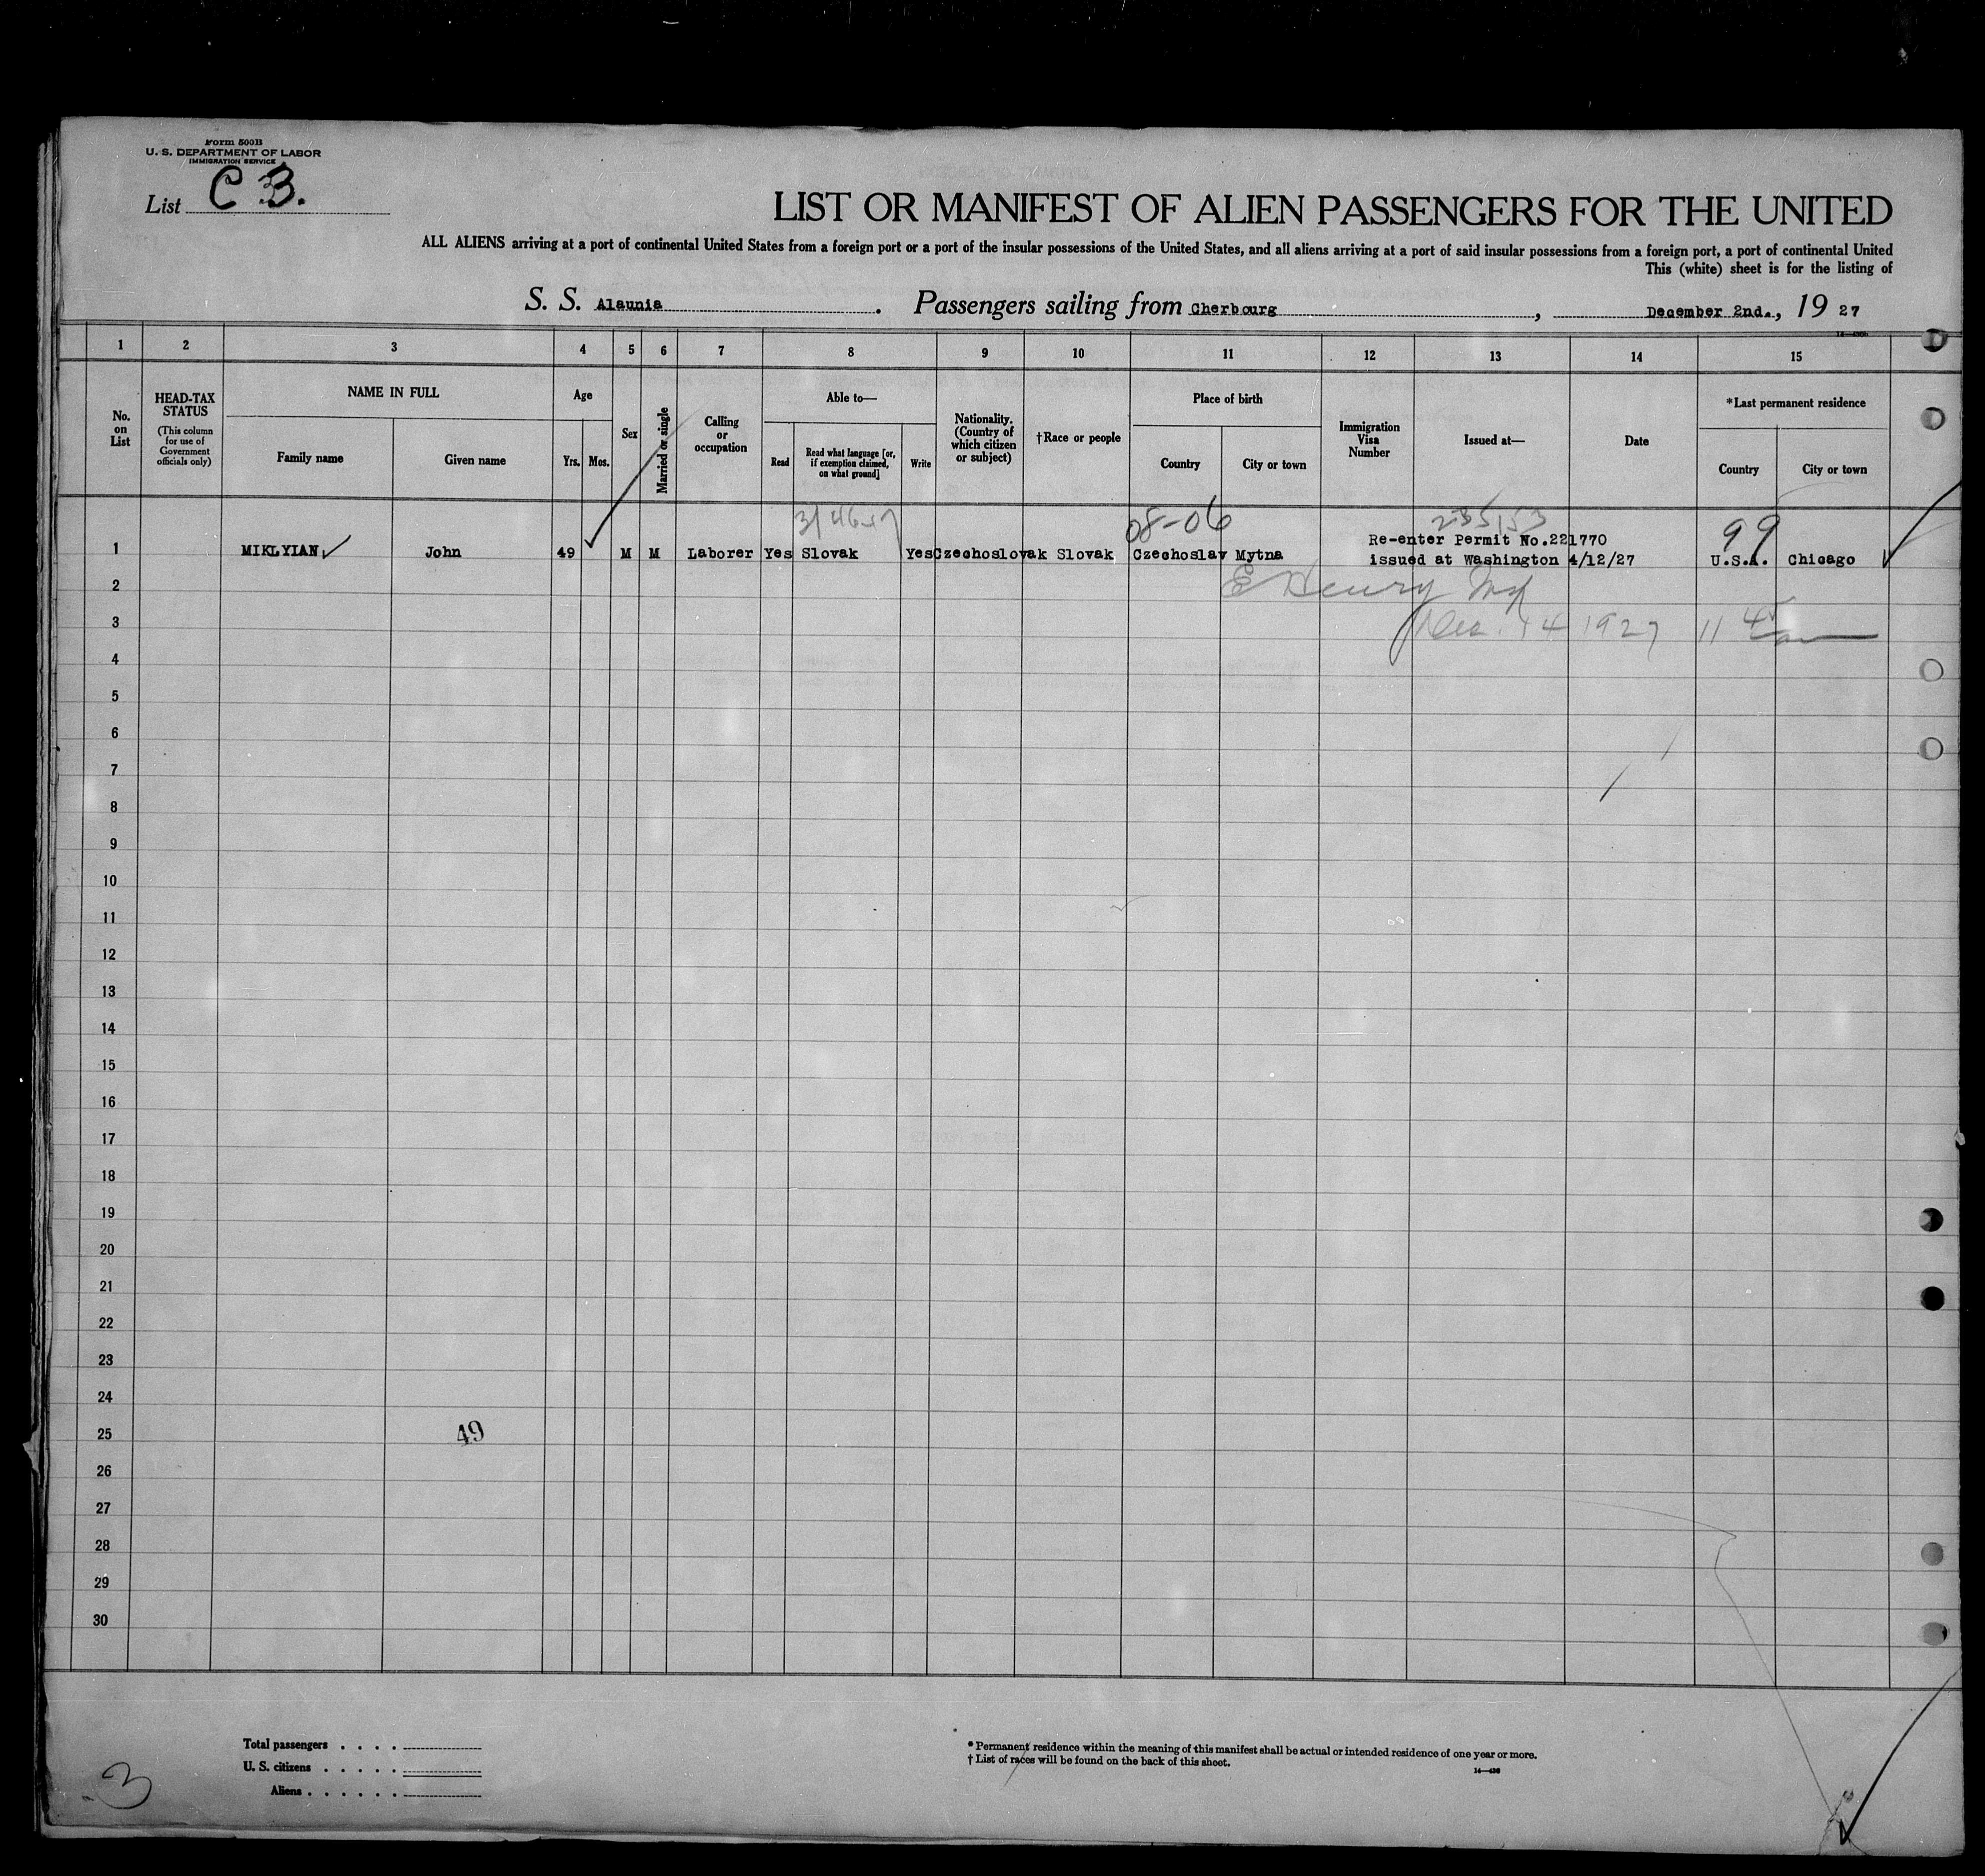 Form 500B
U. S. DEPARTMENT OF LABOR
IMMIGRATION SERVICE
List C B.
LIST OR MANIFEST OF ALIEN PASSENGERS FOR THE UNITED
ALL ALIENS arriving at a port of continental United States from a foreign port or a port of the insular possessions of the United States, and all aliens arriving at a port of said insular possessions from a foreign port, a port of continental United
This (white) sheet is for the listing of
S. S. Alaunia. Passengers sailing from Cherbourg, December 2nd., 19 27
1 2 3 4 5 6 7 8 9 10 11 12 13 14 15
No. on List
HEAD-TAX STATUS
(This column for use of Government officials only)
NAME IN FULL
Family name
Given name
Age
Yrs. Mos.
Sex
Married or single
Calling or occupation
Able to—
Read
Read what language [or, if exemption claimed, on what ground]
Write
Nationality. (Country of which citizen or subject)
†Race or people
Place of birth
Country
City or town
Immigration Visa Number
Issued at—
Date
*Last permanent residence
Country
City or town
08-06
99
1 MIKLYIAN John 49 M M Laborer Yes Slovak Yes Czechoslovak Slovak Czechoslav Mytna Re-enter Permit No.221770 issued at Washington 4/12/27 U.S.A. Chicago
2 E Henry
3 Dec. 14 1927 11 45
4
5
6
7
8
9
10
11
12
13
14
15
16
17
18
19
20
21
22
23
24
25 49
26
27
28
29
30
Total passengers . . . .
U. S. citizens . . . . .
Aliens . . . . . .
* Permanent residence within the meaning of this manifest shall be actual or intended residence of one year or more.
† List of races will be found on the back of this sheet.
14—436
3